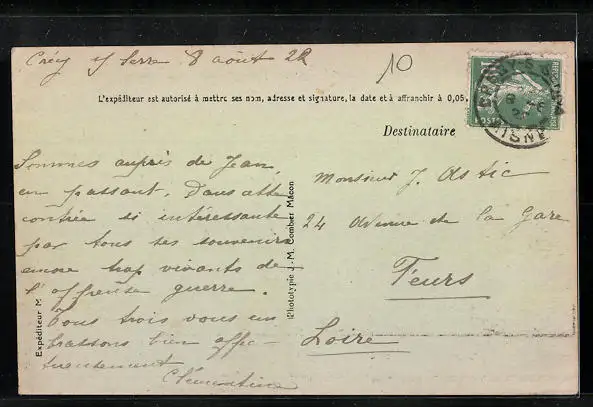 Crécy s/ Serre 8 août 22
10
L'expéditeur est autorisé à mettre ses nom, adresse et signature, la date et à affranchir à 0,05,
Destinataire
Sommes auprès de Jean,
en passant. Dans cette
contrée si intéressante
par tous ses souvenirs
encore trop vivants de
l'affreuse guerre.
Tous trois vous em
brassons bien affec
tueusement
Clémentine
Expéditeur M
Phototypie J.-M. Combier Mâcon
Monsieur J. Astic
24 Avenue de la Gare
Feurs
Loire